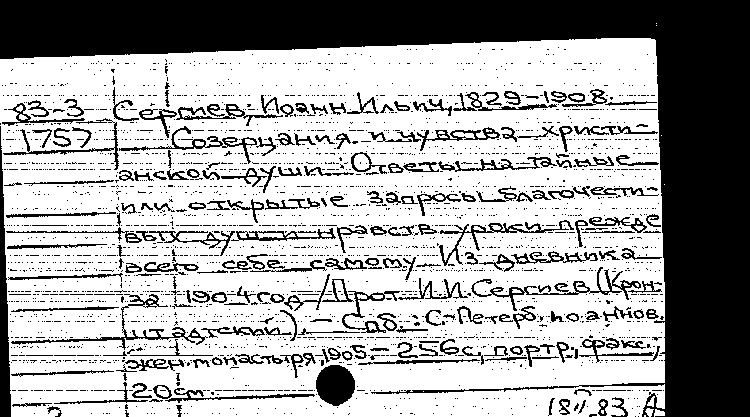 83-3 Сергиев, Иоанн Ильич, 1829-1908.
1757 Созерцания и чувства христи-
анской души: Ответы на тайные
или открытые запросы благочести-
вых душ и нравств. уроки прежде
всего себе самому. Из дневника
за 1904 год / Прот. И.И. Сергиев (Крон-
штадтский). - Спб.: С.-Петерб. Иоаннов.
жен. монастыря, 1905. - 256 с., портр., факс.;
20 см.
83 А